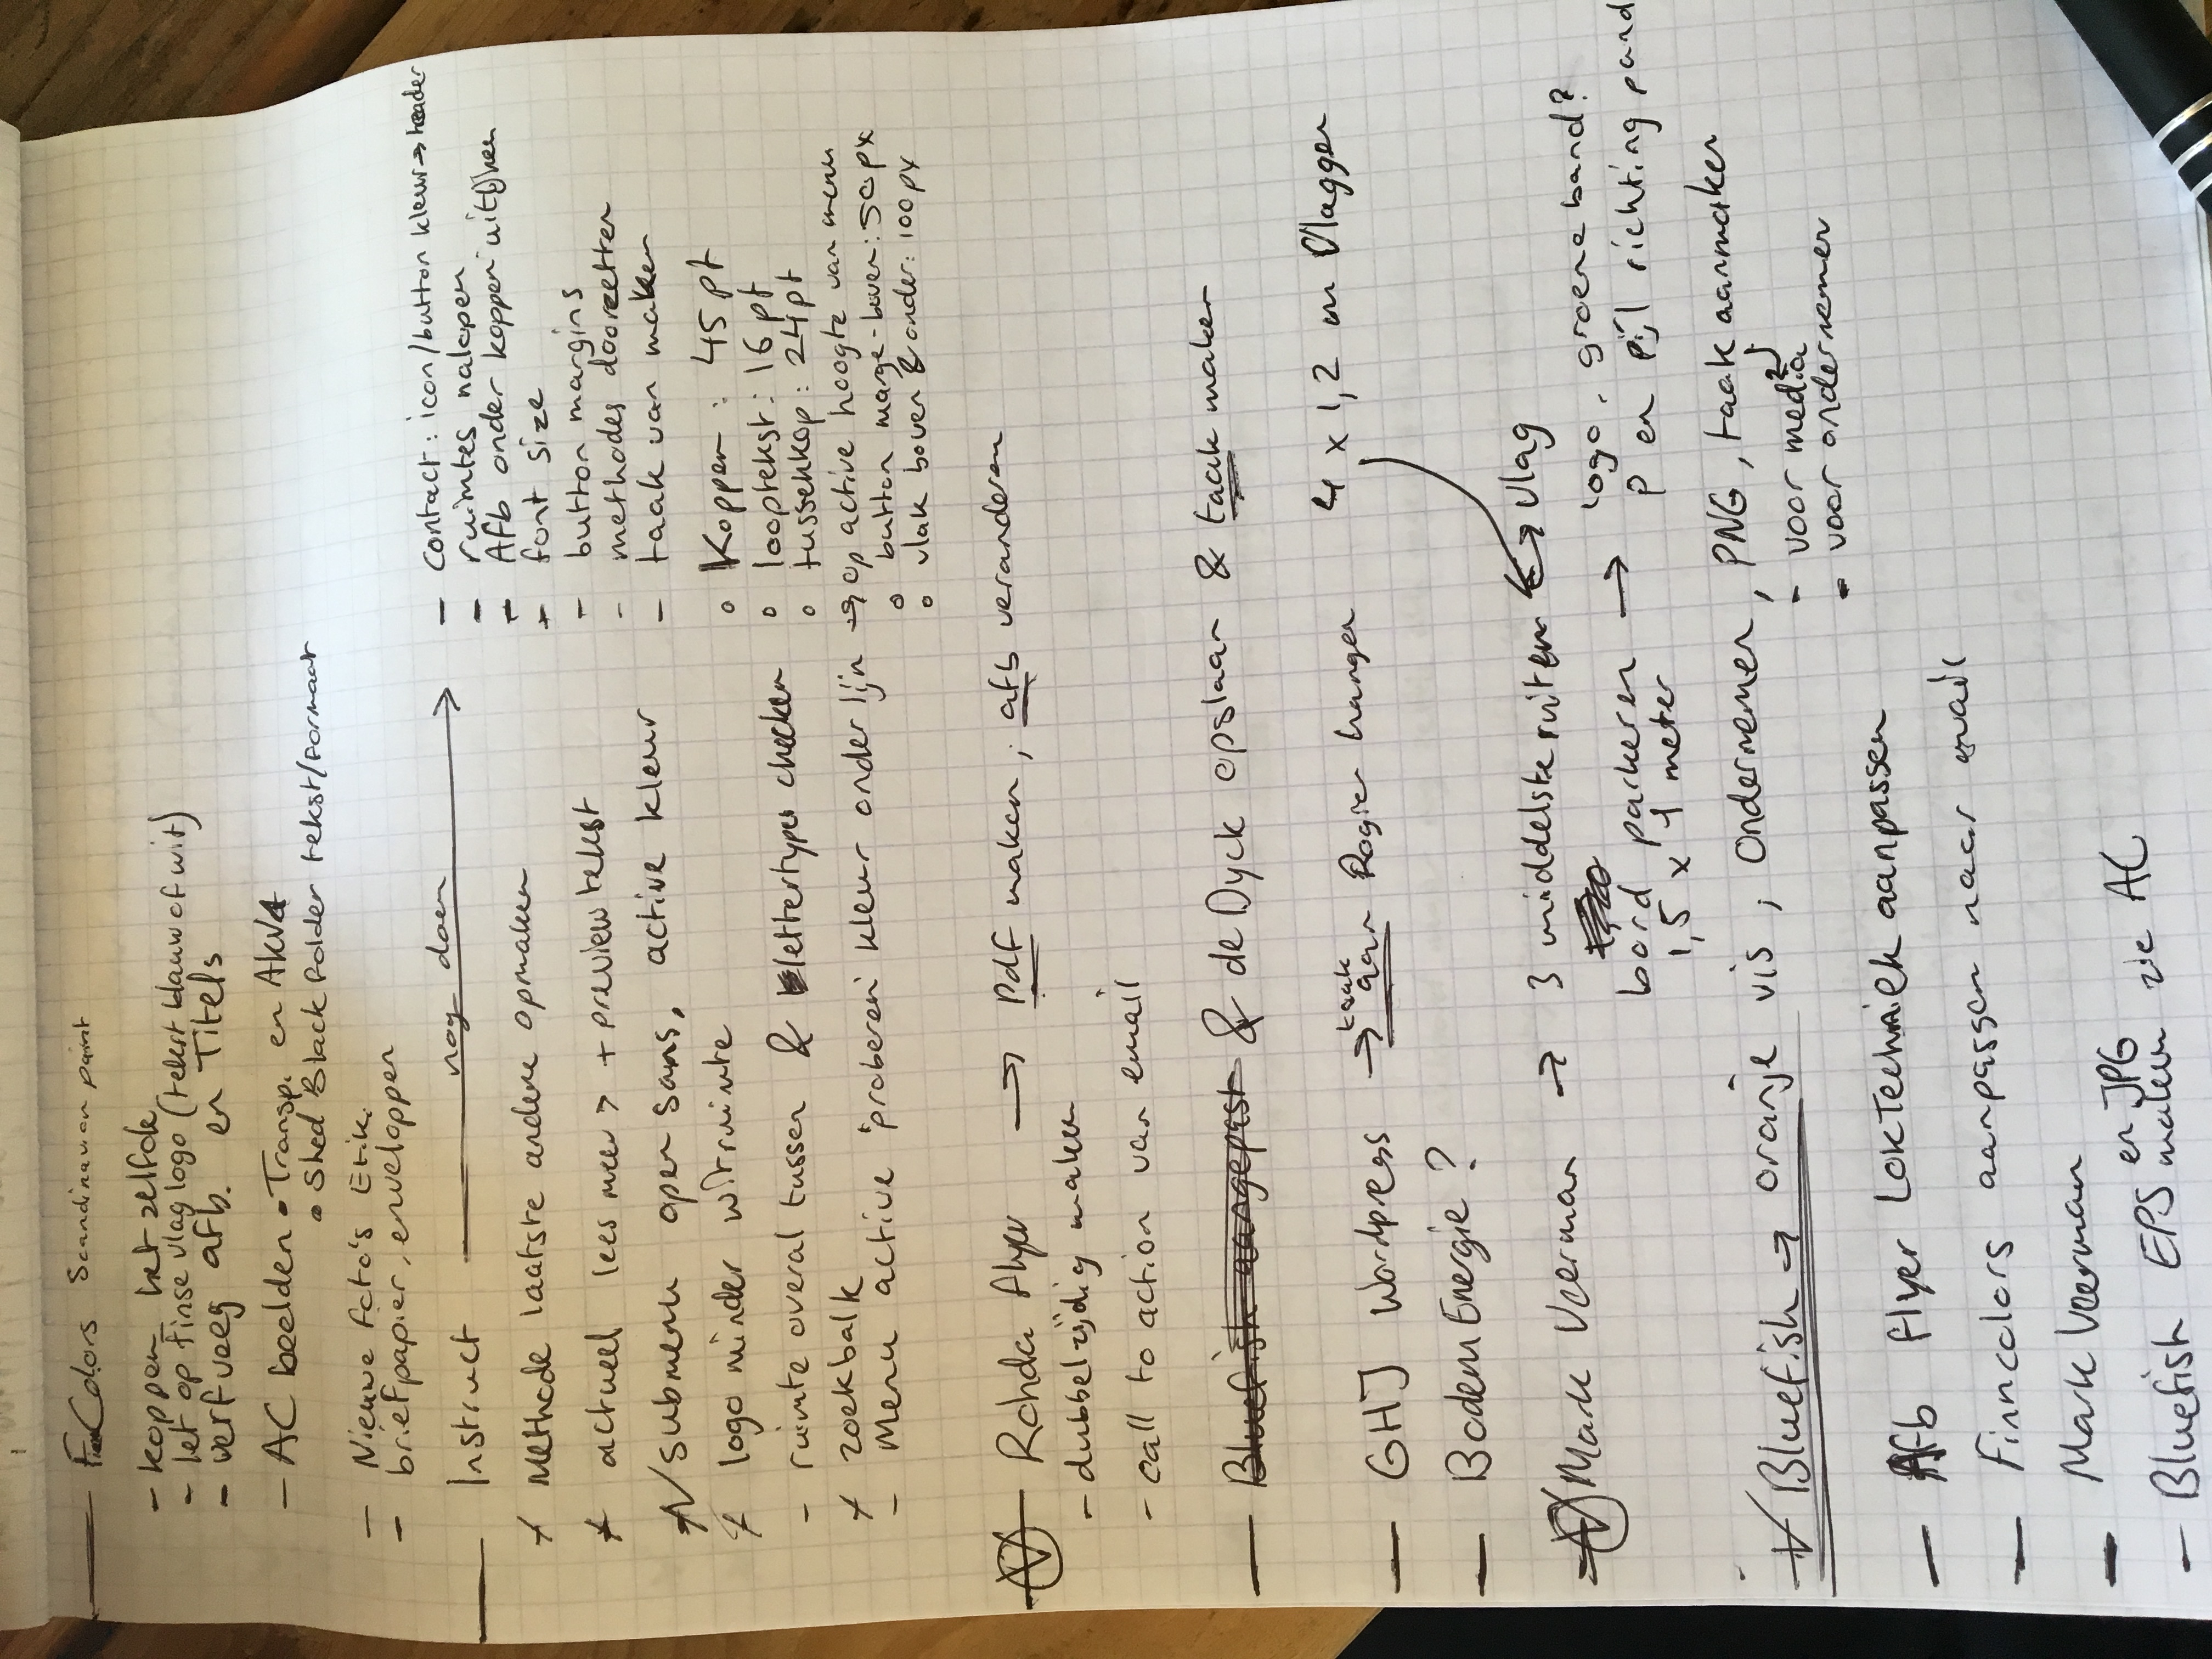 FinColors Scandinavian paint
- koppen het zelfde
- let op Finse vlag logo (tekst blauw of wit)
- verf veeg afb. en Titels
- AC beelden • Transp. en Akva
• Shed Black folder tekst/formaat
- Nieuwe foto's Etik.
- briefpapier, enveloppen
Instruct nog doen →
+ Methode laatste andere opmaken
+ actueel lees meer > + preview tekst
+ V submenu open sans, active kleur
+ logo minder witruimte
- ruimte overal tussen & lettertypes checken
+ zoekbalk
- Menu active proberen kleur onderlijn → op active hoogte van menu
- contact: icon/button kleur → header
- ruimtes nalopen
+ Afb onder koppen uitlijnen
+ font size
- button margins
- methodes doorzetten
- taak van maken
o Koppen: 45 pt
o looptekst: 16 pt
o tussenkop: 24 pt
o button marge-boven: 50 px
o vlak boven & onder: 100 px
V Rohda flyer → Pdf maken ; afb veranderen
- dubbelzijdig maken
- call to action van email
- Bluefish aangepast & de Dyck opslaan & taak maken
- GHJ Wordpress → taak aan Rogier hangen
4 x 1,2 m vlaggen
- BodemEnergie ?
V Mark Veerman → 3 middelste ruiten ↔ vlag
bord parkeren → logo. groene band?
1,5 x 1 meter p en pijl richting pand
V Bluefish → oranje vis ; Ondernemer, PNG, taak aanmaken
- voor media
- voor ondernemer
- Afb flyer LokTechniek aanpassen
- Fincolors aanpassen naar mail
- Mark Veerman
- Bluefish EPS en JPG maken zie AC